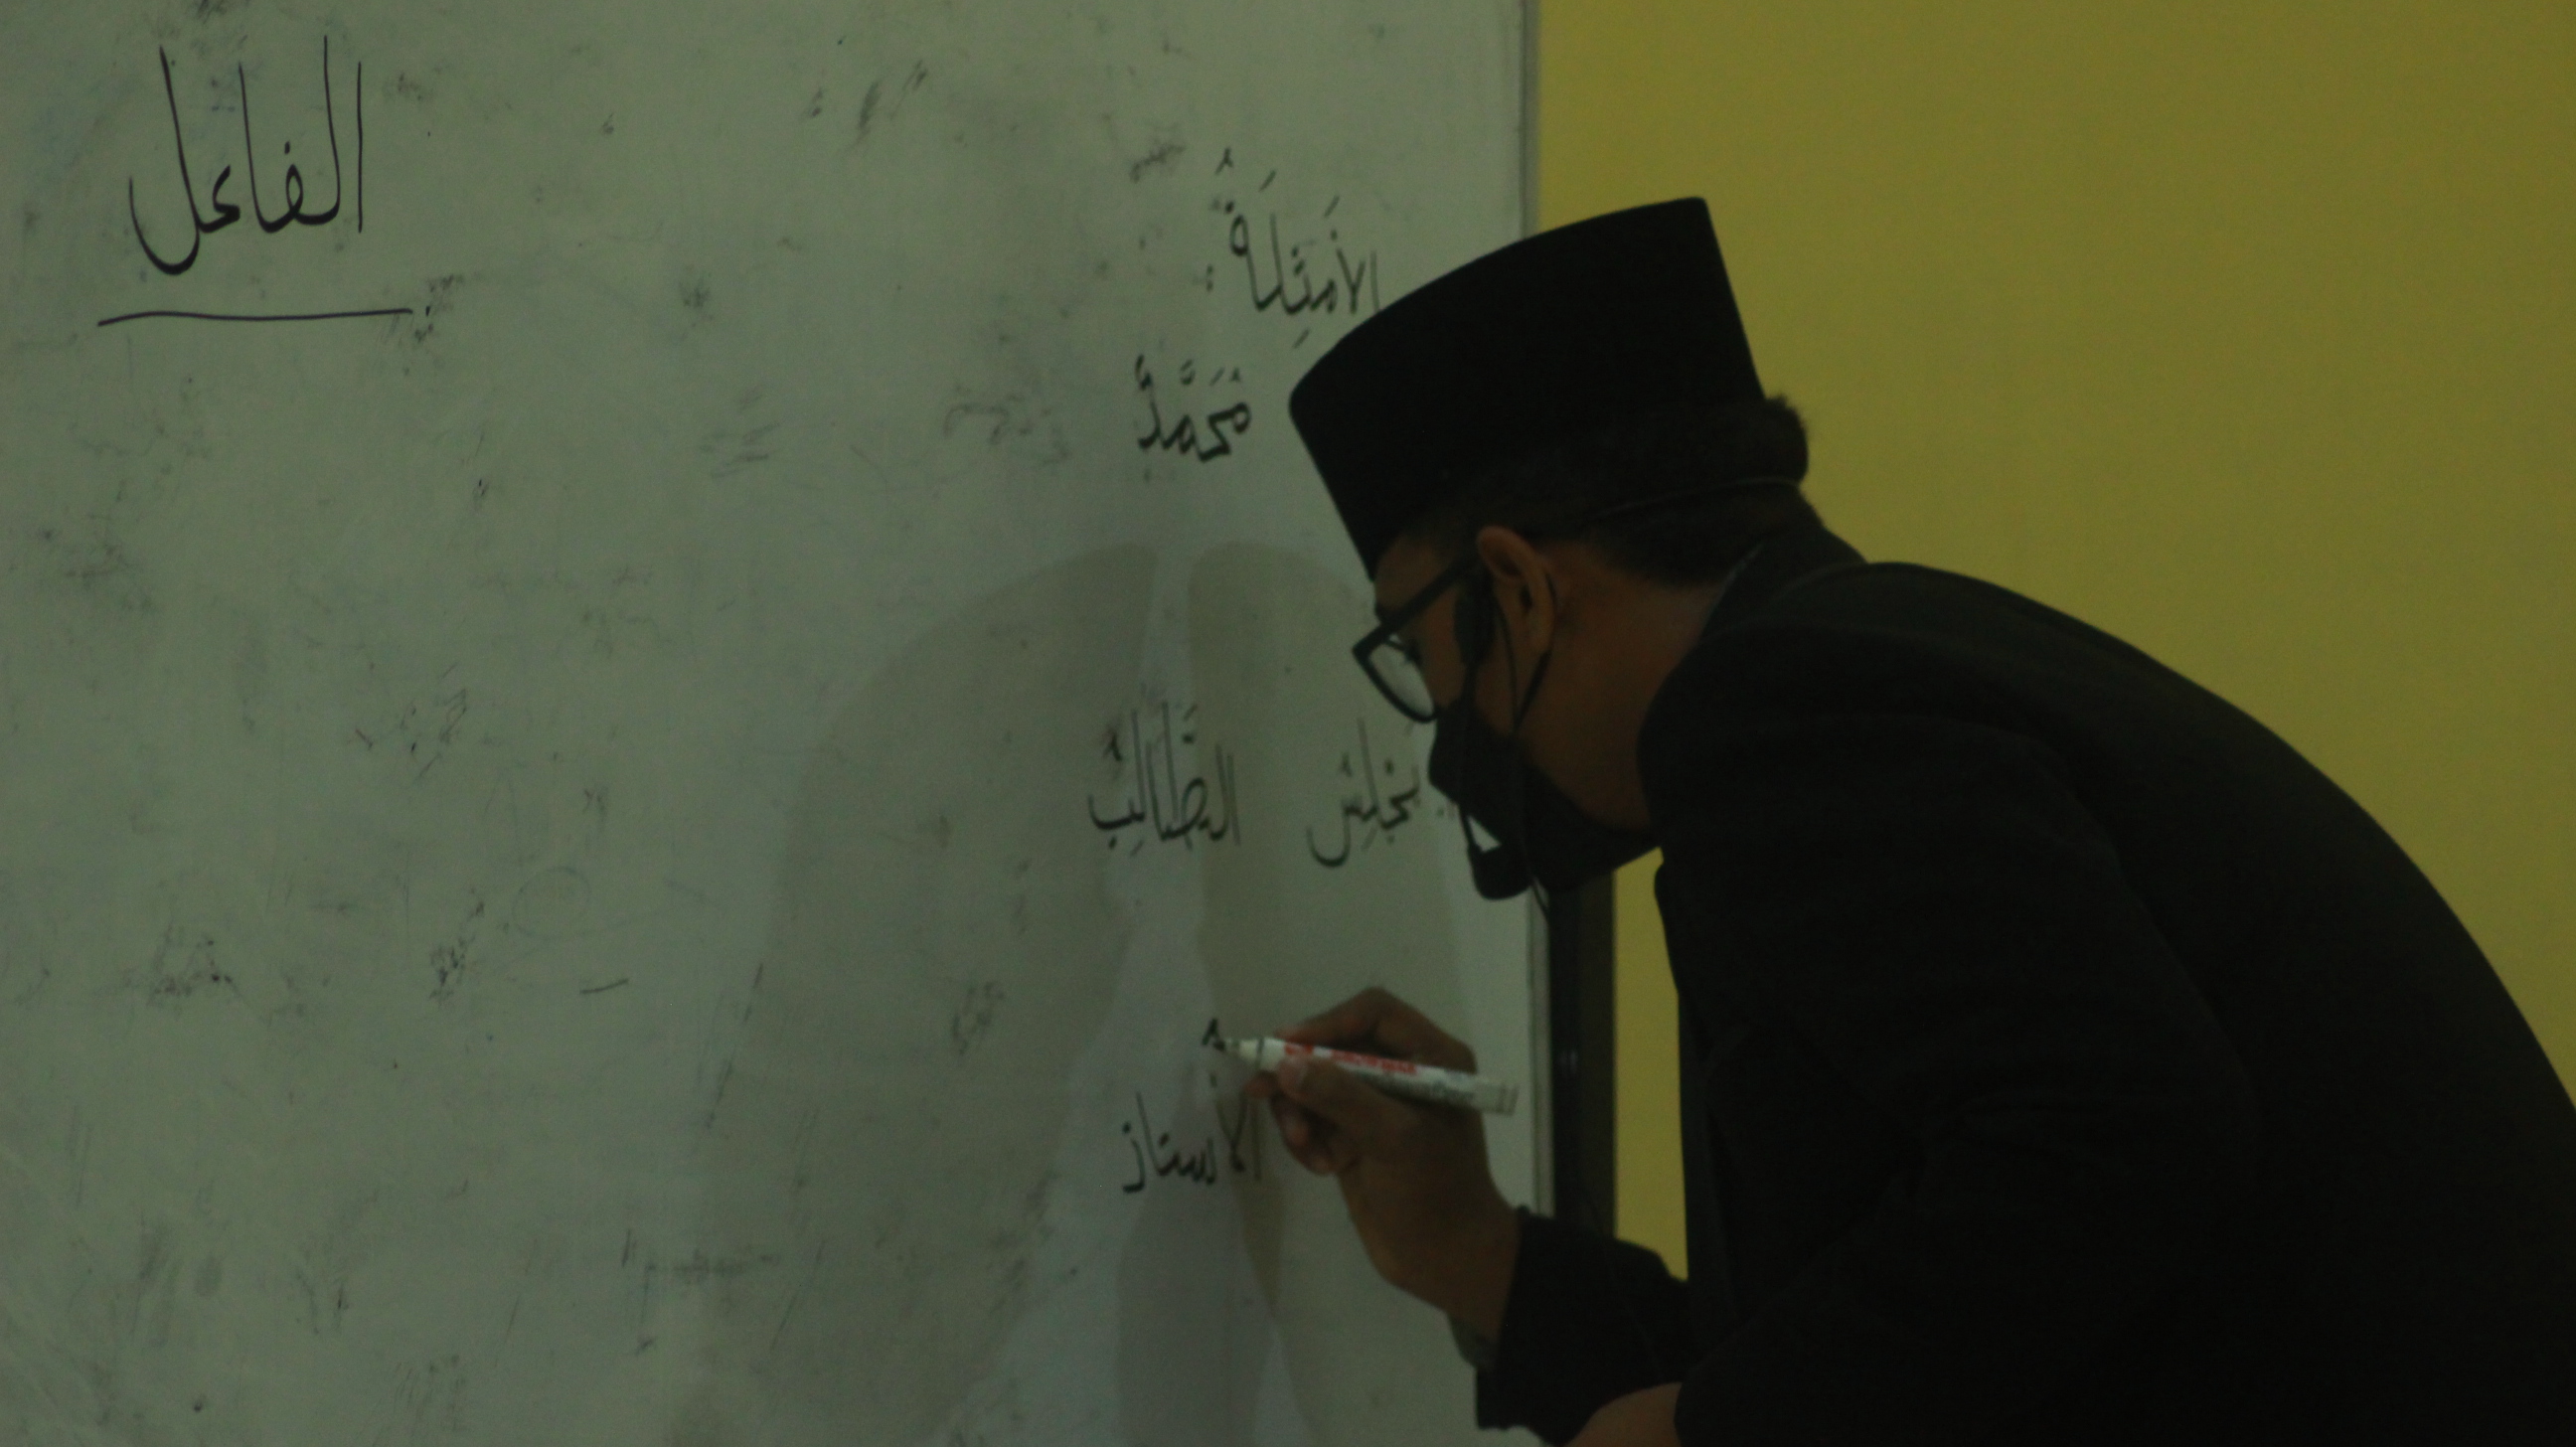 الفاعل
الأَمْثِلَةُ :
مُحَمَّدٌ
يَجْلِسُ الطَّالِبُ
الأستاذ